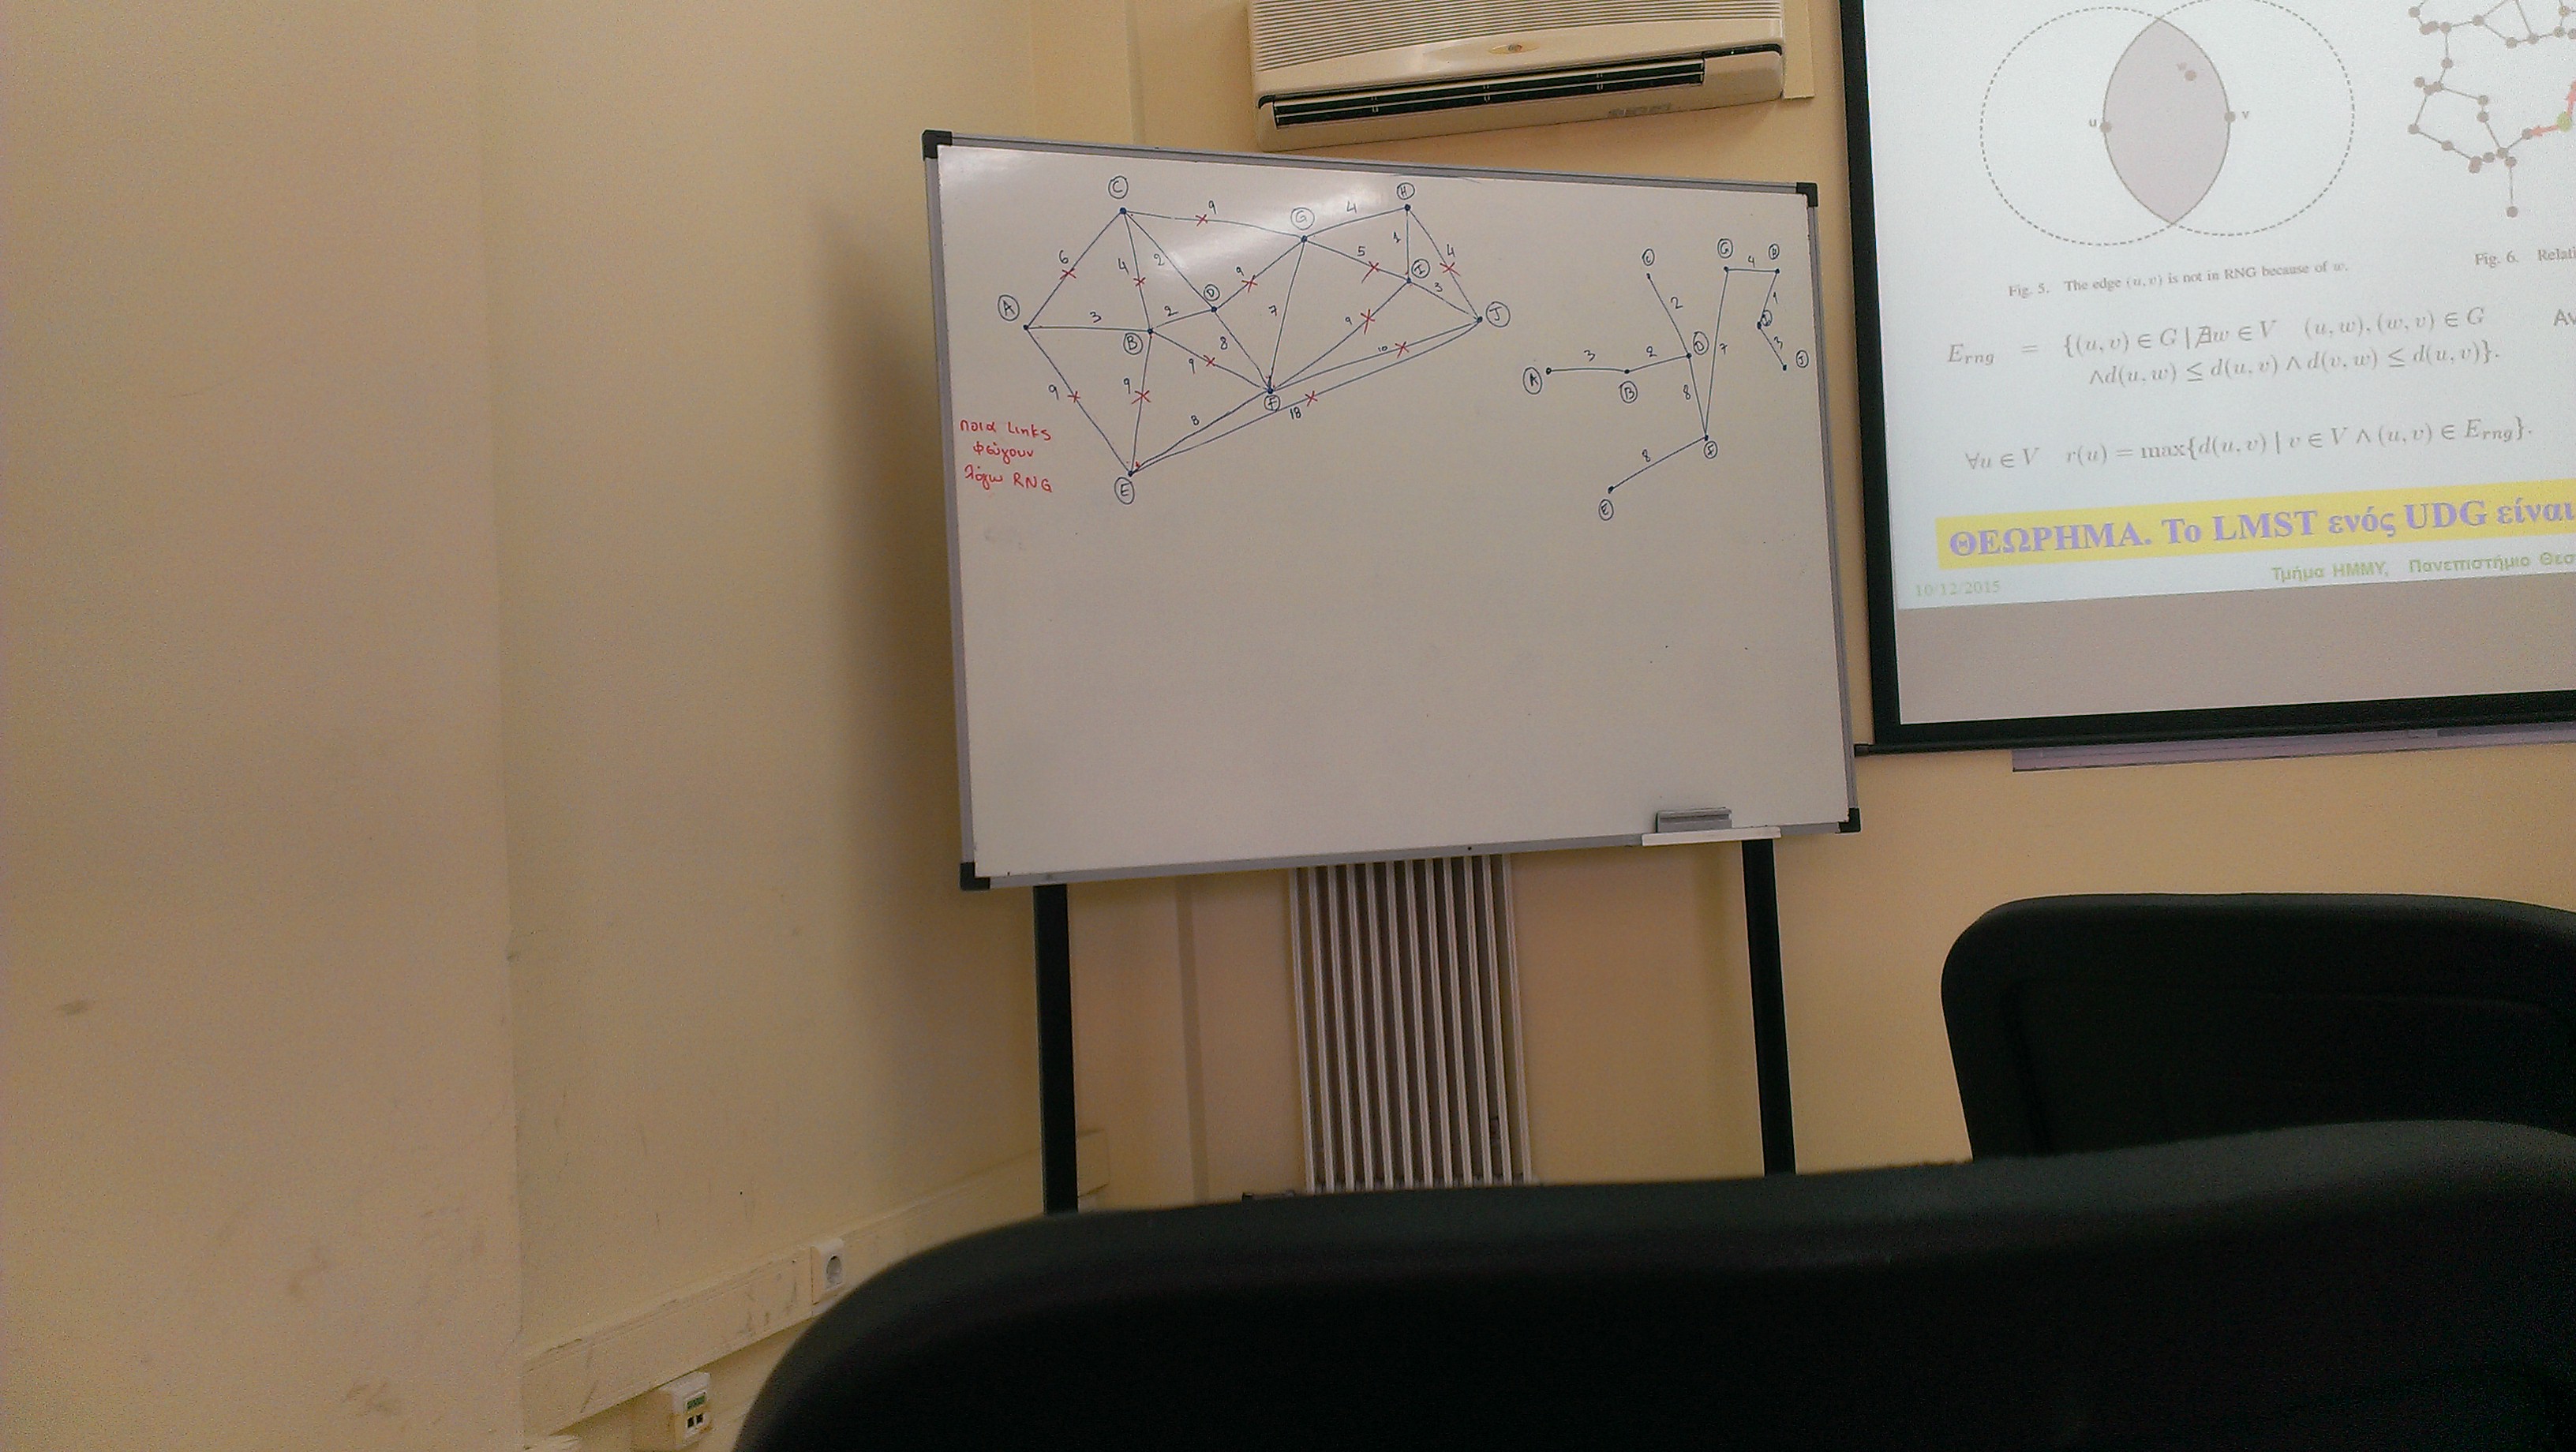 C
9
H
G
4
6
4
2
5
1
4
9
I
A
3
2
D
3
J
B
7
8
9
9
10
9
9
F
8
18
E
ποιά Links
φεύγουν
λόγω RNG
C
G
4
2
1
3
3
2
D
7
J
A
B
8
F
8
E
u
v
Fig. 5. The edge (u, v) is not in RNG because of w.
Fig. 6. Relati
E_rng = {(u, v) ∈ G | ∄w ∈ V (u, w), (w, v) ∈ G
∧d(u, w) ≤ d(u, v) ∧ d(v, w) ≤ d(u, v)}.
Αν
∀u ∈ V r(u) = max{d(u, v) | v ∈ V ∧ (u, v) ∈ E_rng}.
ΘΕΩΡΗΜΑ. Το LMST ενός UDG είναι
10/12/2015
Τμήμα ΗΜΜΥ, Πανεπιστήμιο Θεσ